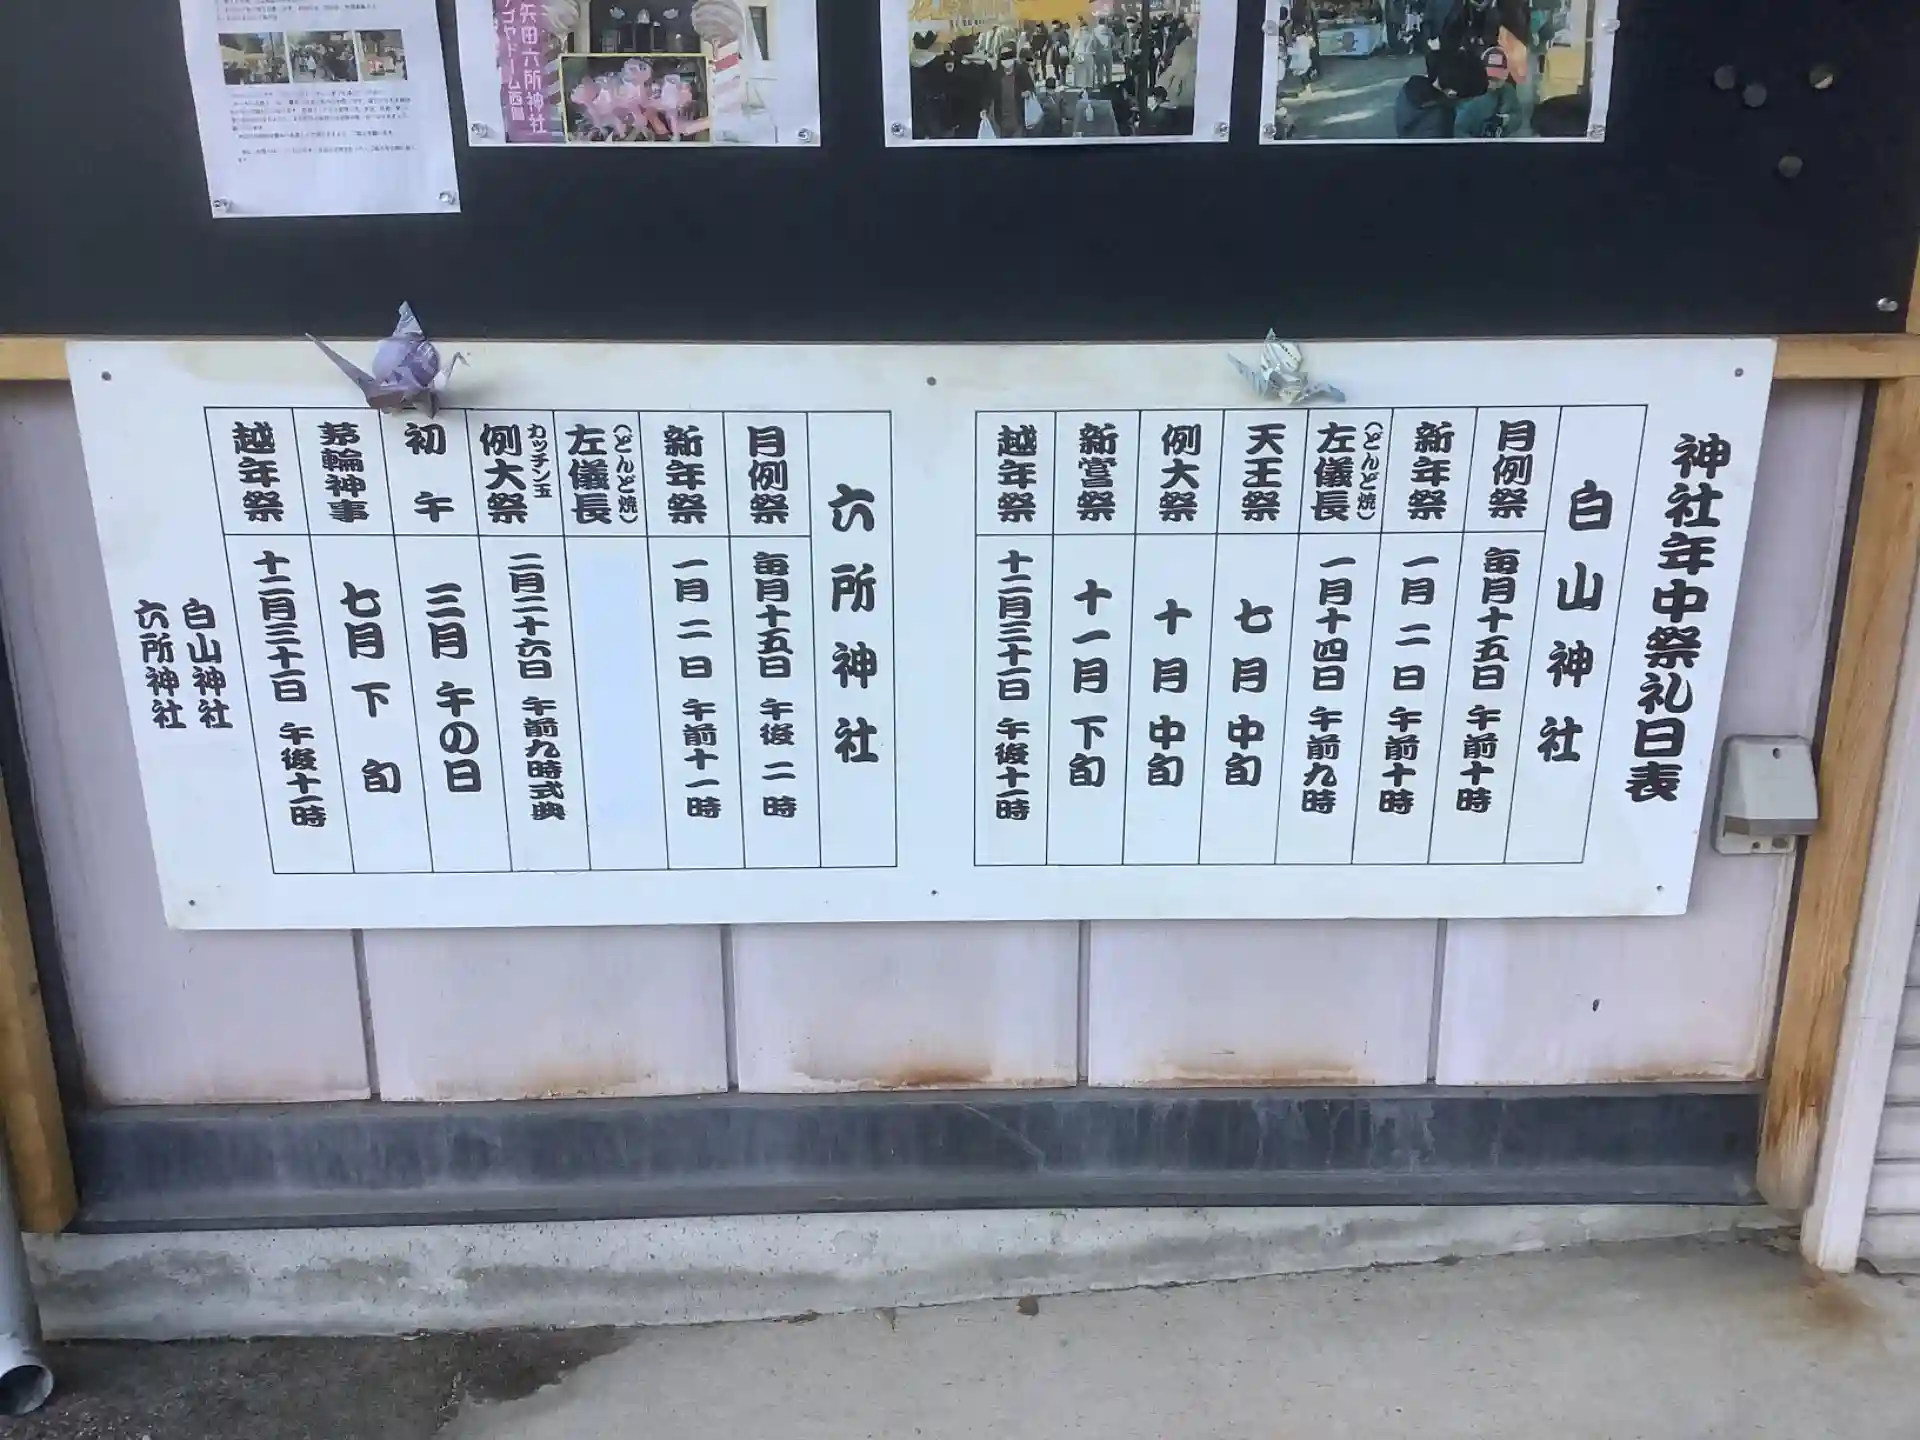 矢田六所神社
ナゴヤドーム西側
神社年中祭礼日表
白山神社
月例祭 毎月十五日 午前十時
新年祭 一月二日 午前十時
左儀長(どんど焼) 一月十四日 午前九時
天王祭 七月中旬
例大祭 十月中旬
新嘗祭 十一月下旬
越年祭 十二月三十一日 午後十一時
六所神社
月例祭 毎月十五日 午後二時
新年祭 一月二日 午前十一時
左儀長(どんど焼)
例大祭 カッチン玉 二月二十六日 午前九時式典
初午 三月午の日
茅輪神事 七月下旬
越年祭 十二月三十一日 午後十一時
白山神社
六所神社